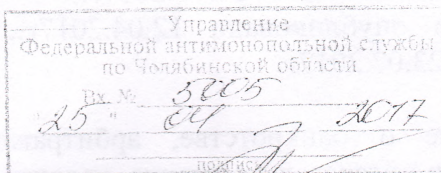 Управление
Федеральной антимонопольной службы
по Челябинской области
Вх. № 5005
25 " 04 2017
подпись